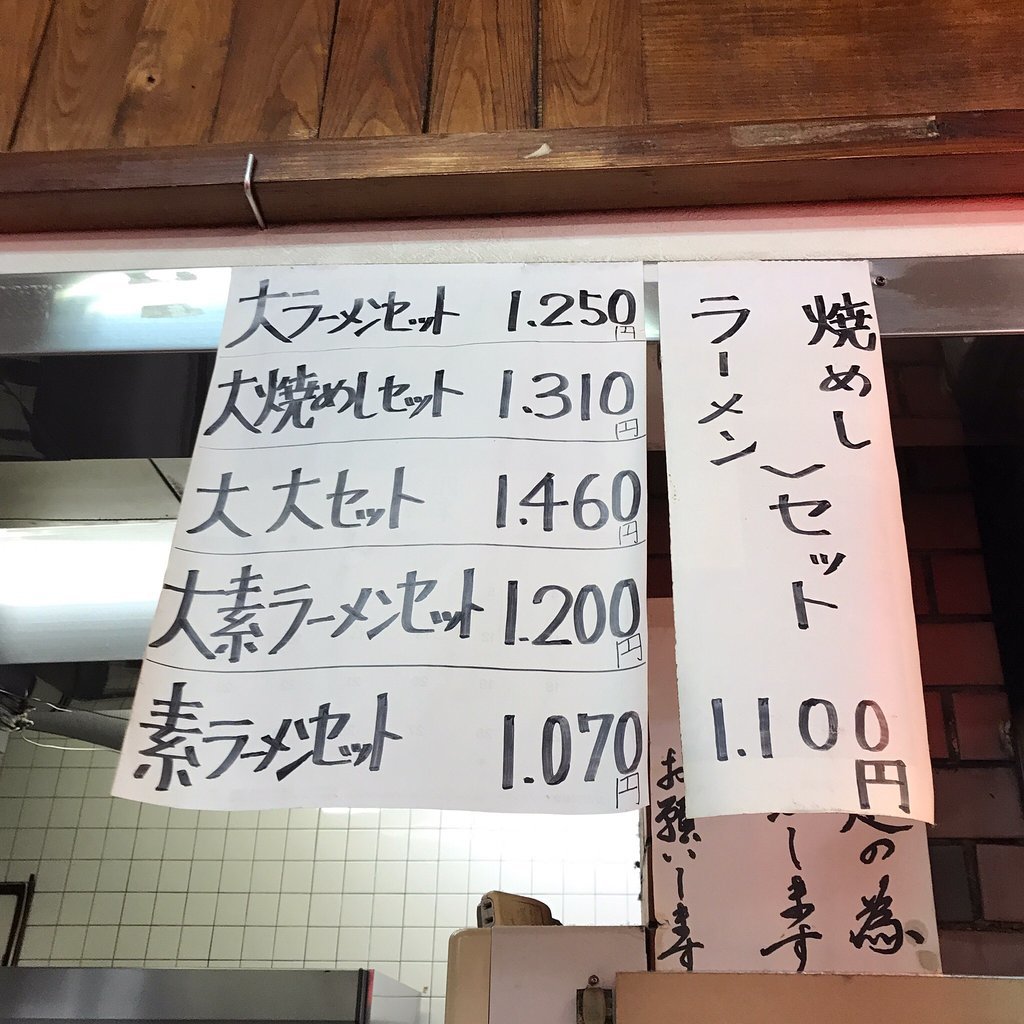 大ラーメンセット 1.250円
大焼めしセット 1.310円
大大セット 1.460円
大素ラーメンセット 1.200円
素ラーメンセット 1.070円
焼めし
ラーメン
セット
1.100円
の為
します
お願いします